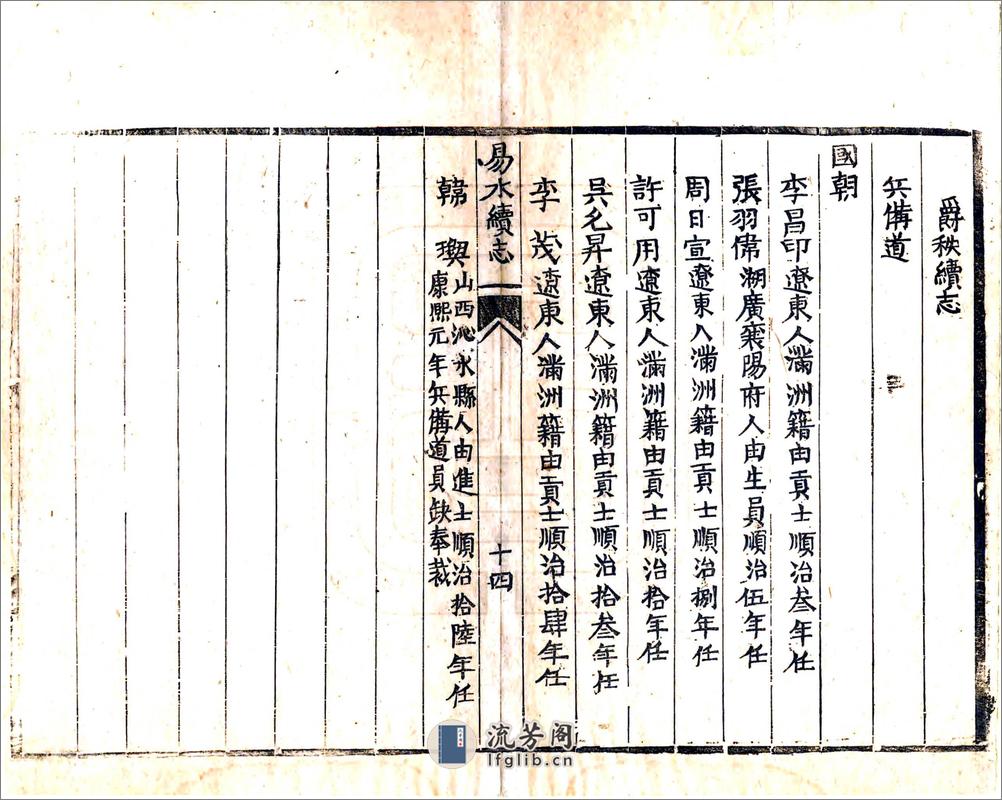 爵秩續志
兵備道
國朝
李昌印遼東人滿洲籍由貢士順治叁年任
張羽儒湖廣襄陽府人由生員順治伍年任
周日宣遼東人滿洲籍由貢士順治捌年任
許可用遼東人滿洲籍由貢士順治拾年任
吳允昇遼東人滿洲籍由貢士順治拾叁年任
李茂遼東人滿洲籍由貢士順治拾肆年任
易水續志
十四
韓㻒山西沁水縣人由進士順治拾陸年任
康熙元年兵備道員缺奉裁
流芳阁
lfglib.cn